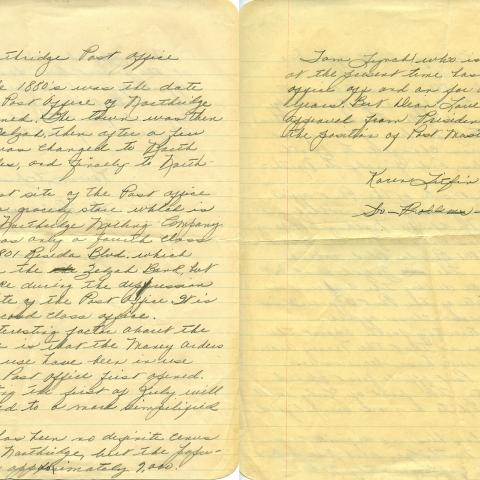 thridge Post Office
e 1880's was the date
Post Office of Northridge
ned. The town was then
Zelzah, then after a few
was changed to North
les, and finally to North-
st site of the Post office
a grocery store which is
Northridge Milling Company.
as only a fourth class
801 Reseda Blvd. which
the Zelzah Bank, but
ce during the depression
te of the Post Office. It is
second class office.
teresting factor about the
e is that the Money Orders
use have been in use
Post office first opened.
ing the first of July will
ed to a more simplified
has been no definite census
Northridge, but the popu-
approximately 9,000.
Tom Lynch who is
at the present time has
office off and on for
years. But Dean Love
approval from Presiden
the position of Post Mast
Karen